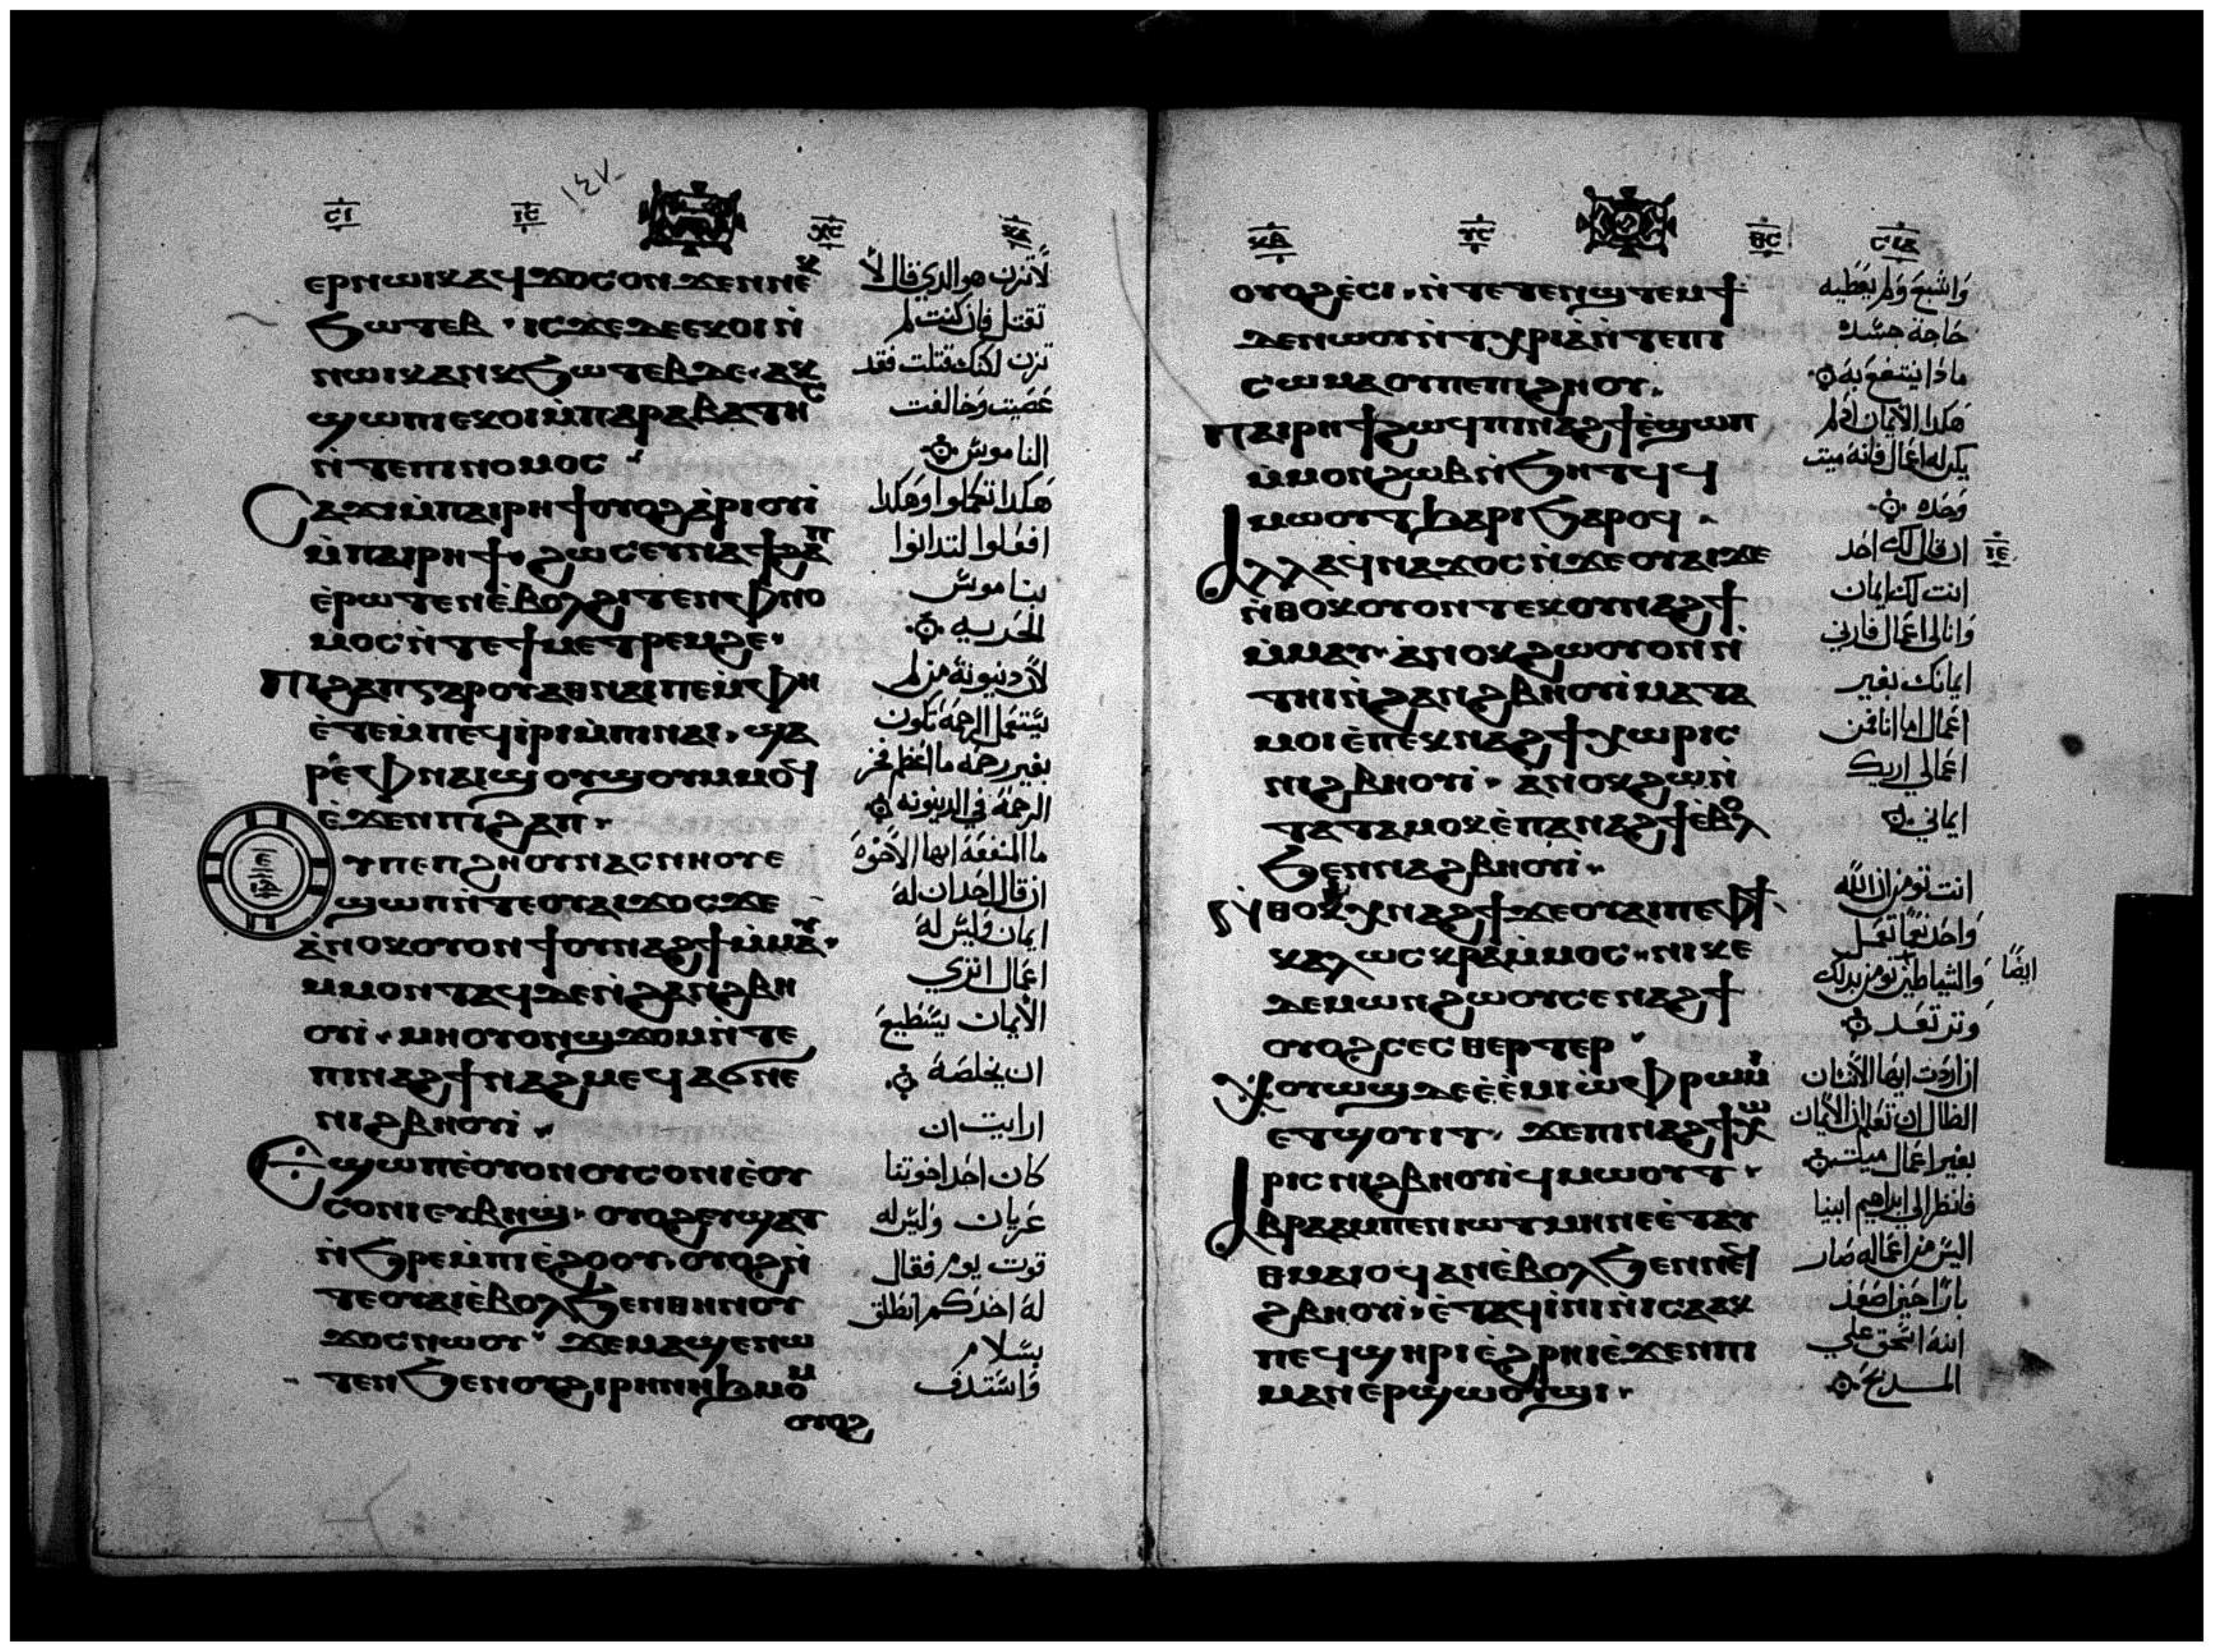 ⲉⲣⲛⲱⲓⲕ ⲁϥϫⲟⲥ ⲟⲛ ϫⲉⲛⲛⲉⲕ
ϧⲱⲧⲉⲃ · ⲓⲥϫⲉ ⲇⲉ ⲉⲕⲟⲓ ⲛ̀
ⲛⲱⲓⲕ ⲁⲛ ⲕϧⲱⲧⲉⲃ ⲇⲉ · ⲁⲕ
ϣⲱⲡⲓ ⲉⲕⲟⲓ ⲙ̀ⲡⲁⲣⲁⲃⲁⲧⲏⲥ
ⲛ̀ⲧⲉ ⲡⲓⲛⲟⲙⲟⲥ
Ⲥⲁϫⲓ ⲙ̀ⲡⲁⲓⲣⲏϯ ⲟⲩⲟϩ ⲁ̀ⲣⲓⲟⲩⲓ̀
ⲙ̀ⲡⲁⲓⲣⲏϯ · ϩⲱⲥ ⲉⲩⲛⲁϯϩⲁⲡ
ⲉ̀ⲣⲱⲧⲉⲛ ⲉ̀ⲃⲟⲗϩⲓⲧⲉⲛ ⲫⲛⲟ
ⲙⲟⲥ ⲛ̀ⲧⲉ ϯⲙⲉⲧⲣⲉⲙϩⲉ ·
Ⲡⲓϩⲁⲡ ⲅⲁⲣ ⲟⲩⲁⲑⲛⲁⲓ ⲡⲉ ⲙ̀ⲫⲏ
ⲉ̀ⲧⲉⲙ̀ⲡⲉϥⲓⲣⲓ ⲙ̀ⲡⲓⲛⲁⲓ · ϣⲁ
ⲣⲉ ⲫⲛⲁⲓ ϣⲟⲩϣⲟⲩ ⲙ̀ⲙⲟϥ
ⲉ̀ϫⲉⲛ ⲡⲓϩⲁⲡ ·
ⲩ ⲡⲉ ⲡϩⲏⲟⲩ ⲛⲁⲥⲛⲏⲟⲩ ⲉ
ϣⲱⲡ ⲛ̀ⲧⲉ ⲟⲩⲁⲓ ϫⲟⲥ ϫⲉ
ⲁ̀ⲛⲟⲕ ⲟⲩⲟⲛϯ ⲟⲩⲛⲁϩϯ ⲙ̀ⲙⲁⲩ ·
ⲙ̀ⲙⲟⲛⲧⲁϥ ⲇⲉ ⲛ̀ϩⲁⲛϩⲃⲏ
ⲟⲩⲓ̀ · ⲙⲏ ⲟⲩⲟⲛϣϫⲟⲙ ⲛ̀ⲧⲉ
ⲡⲓⲛⲁϩϯ ⲛⲁϩⲙⲉϥ ⲁϭⲛⲉ
ⲛⲓϩⲃⲏⲟⲩⲓ̀ ·
Ⲉϣⲱⲡ ⲉ̀ⲟⲩⲟⲛ ⲟⲩⲥⲟⲛ ⲓⲉ ⲟⲩ
ⲥⲱⲛⲓ ⲉⲩⲃⲏϣ · ⲟⲩⲟϩ ⲉⲩϣⲁⲧ
ⲛ̀ϧⲣⲉ ⲙ̀ⲡⲓⲉ̀ϩⲟⲟⲩ · ⲟⲩⲟϩ ⲛ̀
ⲧⲉ ⲟⲩⲁⲓ ⲉ̀ⲃⲟⲗϧⲉⲛ ⲑⲏⲛⲟⲩ
ϫⲟⲥ ⲛⲱⲟⲩ · ϫⲉ ⲙⲁϣⲉⲛⲱ
ⲧⲉⲛ ϧⲉⲛ ⲟⲩϩⲓⲣⲏⲛⲏ ϧⲙⲟⲙ
ⲟⲩⲟϩ
لا تزن هو الدي قال لا
تقتل فان كنت لم
تزن لكنك قتلت فقد
عصيت وخالفت
الناموس
هكدا تكلموا وهكدا
افعلوا لتدانوا
بناموس
الحريه
لان دنيونة من لم
يستعمل الرحمة تكون
بغير رحمه ما اعظم فخر
الرحمة في الدينونه
ما المنفعة ايها الاخوة
ان قال احد ان له
ايمان وليس له
اعمال اتري
الايمان يستطيع
ان يخلصه
ارايت ان
كان احد اخوتنا
عريان وليس له
قوت يوم فقال
له احدكم انطلق
بسلام
واستدف
ⲟⲩⲟϩ ⲉ̀ⲥⲓ · ⲛ̀ⲧⲉⲧⲉⲛϣⲧⲉⲙϯ
ⲇⲉ ⲛⲱⲟⲩ ⲛ̀ⲧⲭⲣⲓⲁ̀ ⲛ̀ⲧⲉ ⲡⲓ
ⲥⲱⲙⲁ ⲟⲩ ⲡⲉ ⲡⲓϩⲏⲟⲩ ·
Ⲡⲁⲓⲣⲏϯ ϩⲱϥ ⲡⲓⲛⲁϩϯ ⲉ̀ϣⲱⲡ
ⲙ̀ⲙⲟⲛ ϩⲱⲃ ⲛ̀ϧⲏⲧϥ ϥ
ⲙⲱⲟⲩⲧ ϧⲁⲣⲓϧⲁⲣⲟϥ ·
Ⲁⲗⲗⲁ ϥ̀ⲛⲁϫⲟⲥ ⲛ̀ϫⲉ ⲟⲩⲁⲓ ϫⲉ
ⲛ̀ⲑⲟⲕ ⲟⲩⲟⲛⲧⲉⲕ ⲟⲩⲛⲁϩϯ
ⲙ̀ⲙⲁⲩ · ⲁ̀ⲛⲟⲕ ϩⲱ ⲟⲩⲟⲛⲛ̀
ⲧⲏⲓ ⲛ̀ϩⲁⲛϩⲃⲏⲟⲩⲓ̀ ⲙⲁⲧⲁ
ⲙⲟⲓ ⲉ̀ⲡⲉⲕⲛⲁϩϯ ⲭⲱⲣⲓⲥ
ⲛⲓϩⲃⲏⲟⲩⲓ̀ · ⲁⲛⲟⲕ ϩⲱ ⲛ̀
ⲧⲁⲧⲁⲙⲟⲕ ⲉ̀ⲡⲁⲛⲁϩϯ ⲉ̀ⲃⲟⲗ
ϧⲉⲛ ⲛⲁϩⲃⲏⲟⲩⲓ̀ ·
ⲛ̀ⲑⲟⲕ ⲭⲛⲁϩϯ ϫⲉ ⲟⲩⲁⲓ ⲡⲉ ⲫϯ
ⲕⲁⲗⲱⲥ ⲕⲣⲁ ⲙ̀ⲙⲟⲥ · ⲛⲓⲕⲉ
ⲇⲉⲙⲱⲛ ϩⲱⲟⲩ ⲥⲉⲛⲁϩϯ
ⲟⲩⲟϩ ⲥⲉⲥⲑⲉⲣⲧⲉⲣ
Ⲭⲟⲩⲱϣ ⲇⲉ ⲉ̀ⲉ̀ⲙⲓ ⲱ̀ ⲫⲣⲱⲙⲓ
ⲉⲧϣⲟⲩⲓⲧ · ϫⲉ ⲡⲓⲛⲁϩϯ ⲭⲱ
ⲣⲓⲥ ⲛⲓϩⲃⲏⲟⲩⲓ̀ ϥⲙⲱⲟⲩⲧ ·
Ⲁⲃⲣⲁⲁⲙ ⲡⲉⲛⲓⲱⲧ ⲙⲏ ⲛⲉ ⲉ̀ⲧⲁⲩ
ⲑⲙⲁⲓⲟϥ ⲁⲛ ⲉ̀ⲃⲟⲗϧⲉⲛ ⲛⲉϥ
ϩⲃⲏⲟⲩⲓ̀ · ⲉ̀ⲧⲁϥⲓ̀ⲛⲓ ⲛ̀ⲓⲥⲁⲁⲕ
ⲡⲉϥϣⲏⲣⲓ ⲉ̀ϩⲣⲏⲓ ⲉ̀ϫⲉⲛ ⲡⲓ
ⲙⲁⲛⲉⲣϣⲱⲟⲩϣⲓ ·
واشبع ولم يعطيه
حاجة جسده
مادا ينتفع به
هكدا الايمان ادا لم
يكن له اعمال فانه ميت
وحده
ان قال لك احد
انت لك ايمان
وانا لي اعمال فارني
ايمانك بغير
اعمال اما انا فمن
اعمالي اريك
ايماني
انت تومن ان الله
واحد نعما تعمل
والشياطين تومن بدلك ايضًا
وترتعد
ان اردت ايها الانسان
الضال ان تعلم ان الايمان
بغير اعمال ميت
فانظر الي ابراهيم ابينا
اليس من اعماله صار
بارا حين اصعد
ابنه اسحق علي
المدبح